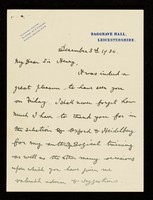 HARGRAVE HALL,
LEICESTERSHIRE.
December 3rd 1936
My Dear Sir Henry,
It was indeed a
great pleasure to have seen you
on Friday. I shall never forget how
much I have to thank you for in
the selection of Oxford & Heidelberg
for my training
as well as the other many occasions
upon which you have given me
valuable advice &